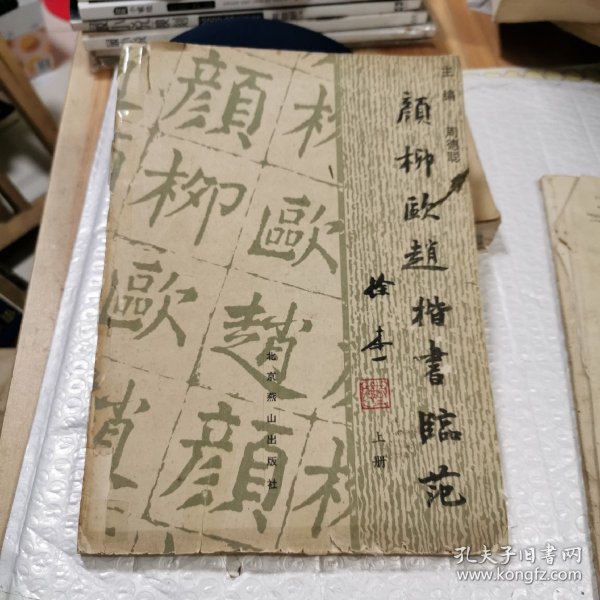 主编 周德聪
顔柳歐趙楷書臨范
上册
北京燕山出版社
顔 柳
柳 歐
歐 趙
顔
孔夫子旧书网
www.kongfz.com